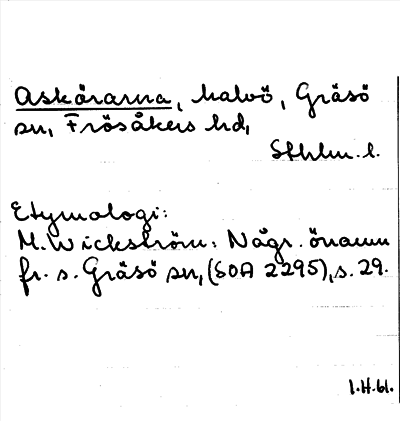 Askörarna, halvö, Gräsö
sn, Frösåkers hd,
Sthlm. l.
Etymologi:
M. Wickström: Någr. önamn
fr. s. Gräsö sn, (SOA 2295), s. 29.
I.H.61.